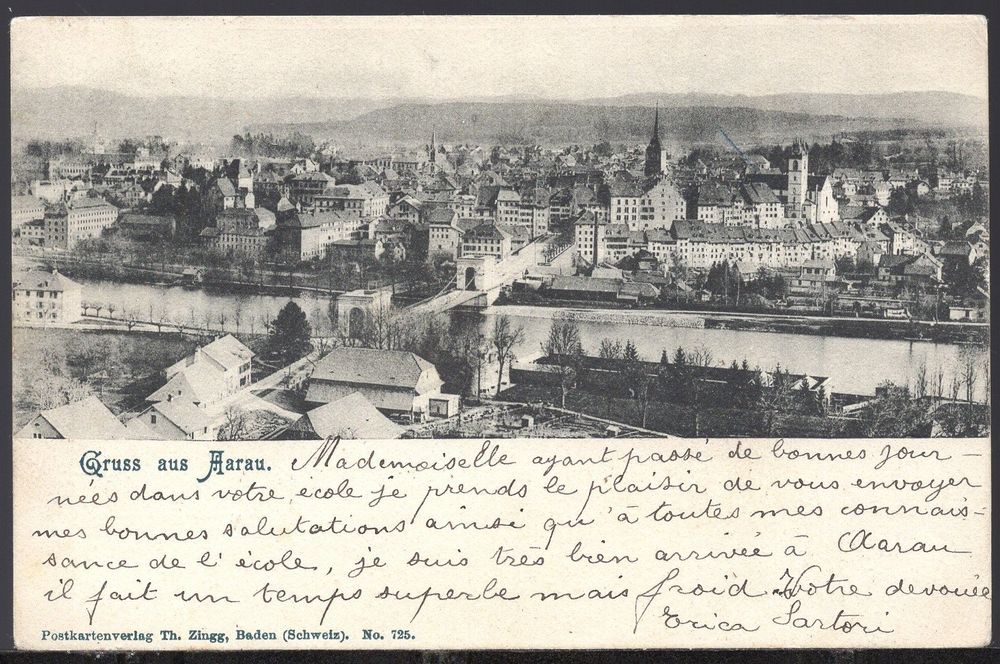 Gruss aus Aarau. Mademoiselle ayant passé de bonnes jour-
nées dans votre école je prends le plaisir de vous envoyer
mes bonnes salutations ainsi qu'à toutes mes connais-
sance de l'école, je suis très bien arrivée à Aarau
il fait un temps superbe mais froid. Votre devouée
Erica Sartori
Postkartenverlag Th. Zingg, Baden (Schweiz). No. 725.